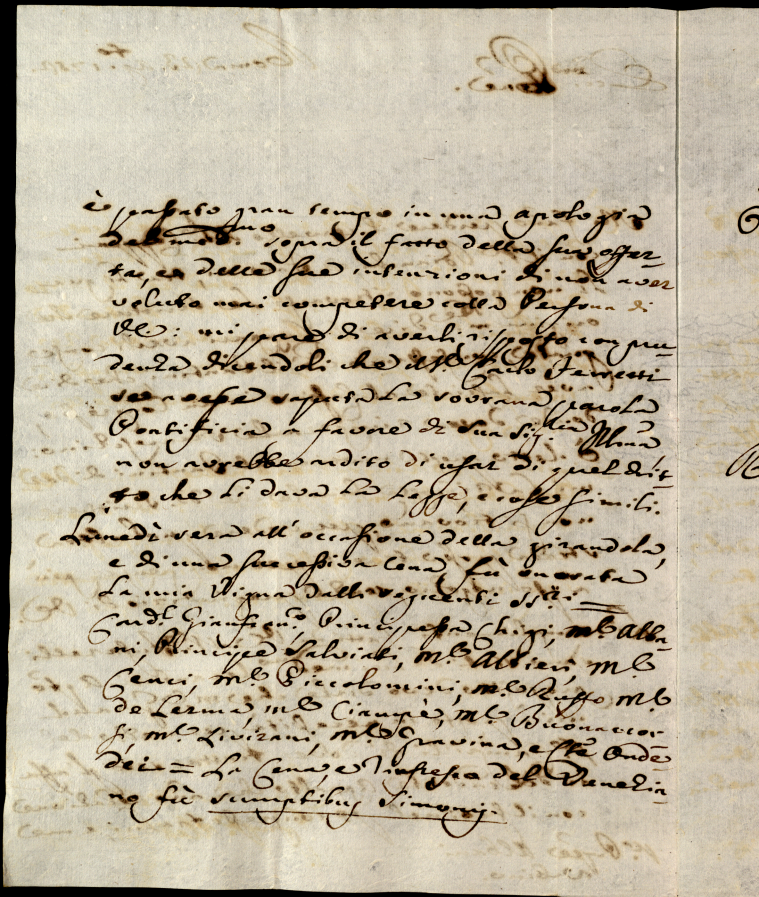 è passato gran tempo in una apologia
del mo.. sopra il fatto della sua offer-
ta, e delle sue intenzioni di non aver
voluto mai competere colla Persona di
VE: mi pare di averli risposto con pru-
denza dicendoli che il Sr. Carlo Ferretti
se avesse saputa La sovrana parola
Pontificia a favore di Sua Sig.ria Illma
non avrebbe ardito di usar di quel drit-
to che Li dava La Legge, e cose simili.
Lunedì sera all'occasione della girandola,
e di una successiva Cena fù onorata
La mia Vigna dalli seguenti SS.ri =
Card.l Gianfran.co, Principessa Chigi, M.r Alba-
ni, Principe Salviati, M.r Altieri, M.r
Cenci, M.r Piccolomini, M.r Ruffo M.r
de Lerma, M.r Ciampè, M.r Buonaccor
si, M.r Livizani, M.r Gravina, e Onde
dei = La Cena, e rinfresco del Venezia-
no fù sumptibus Simonis.